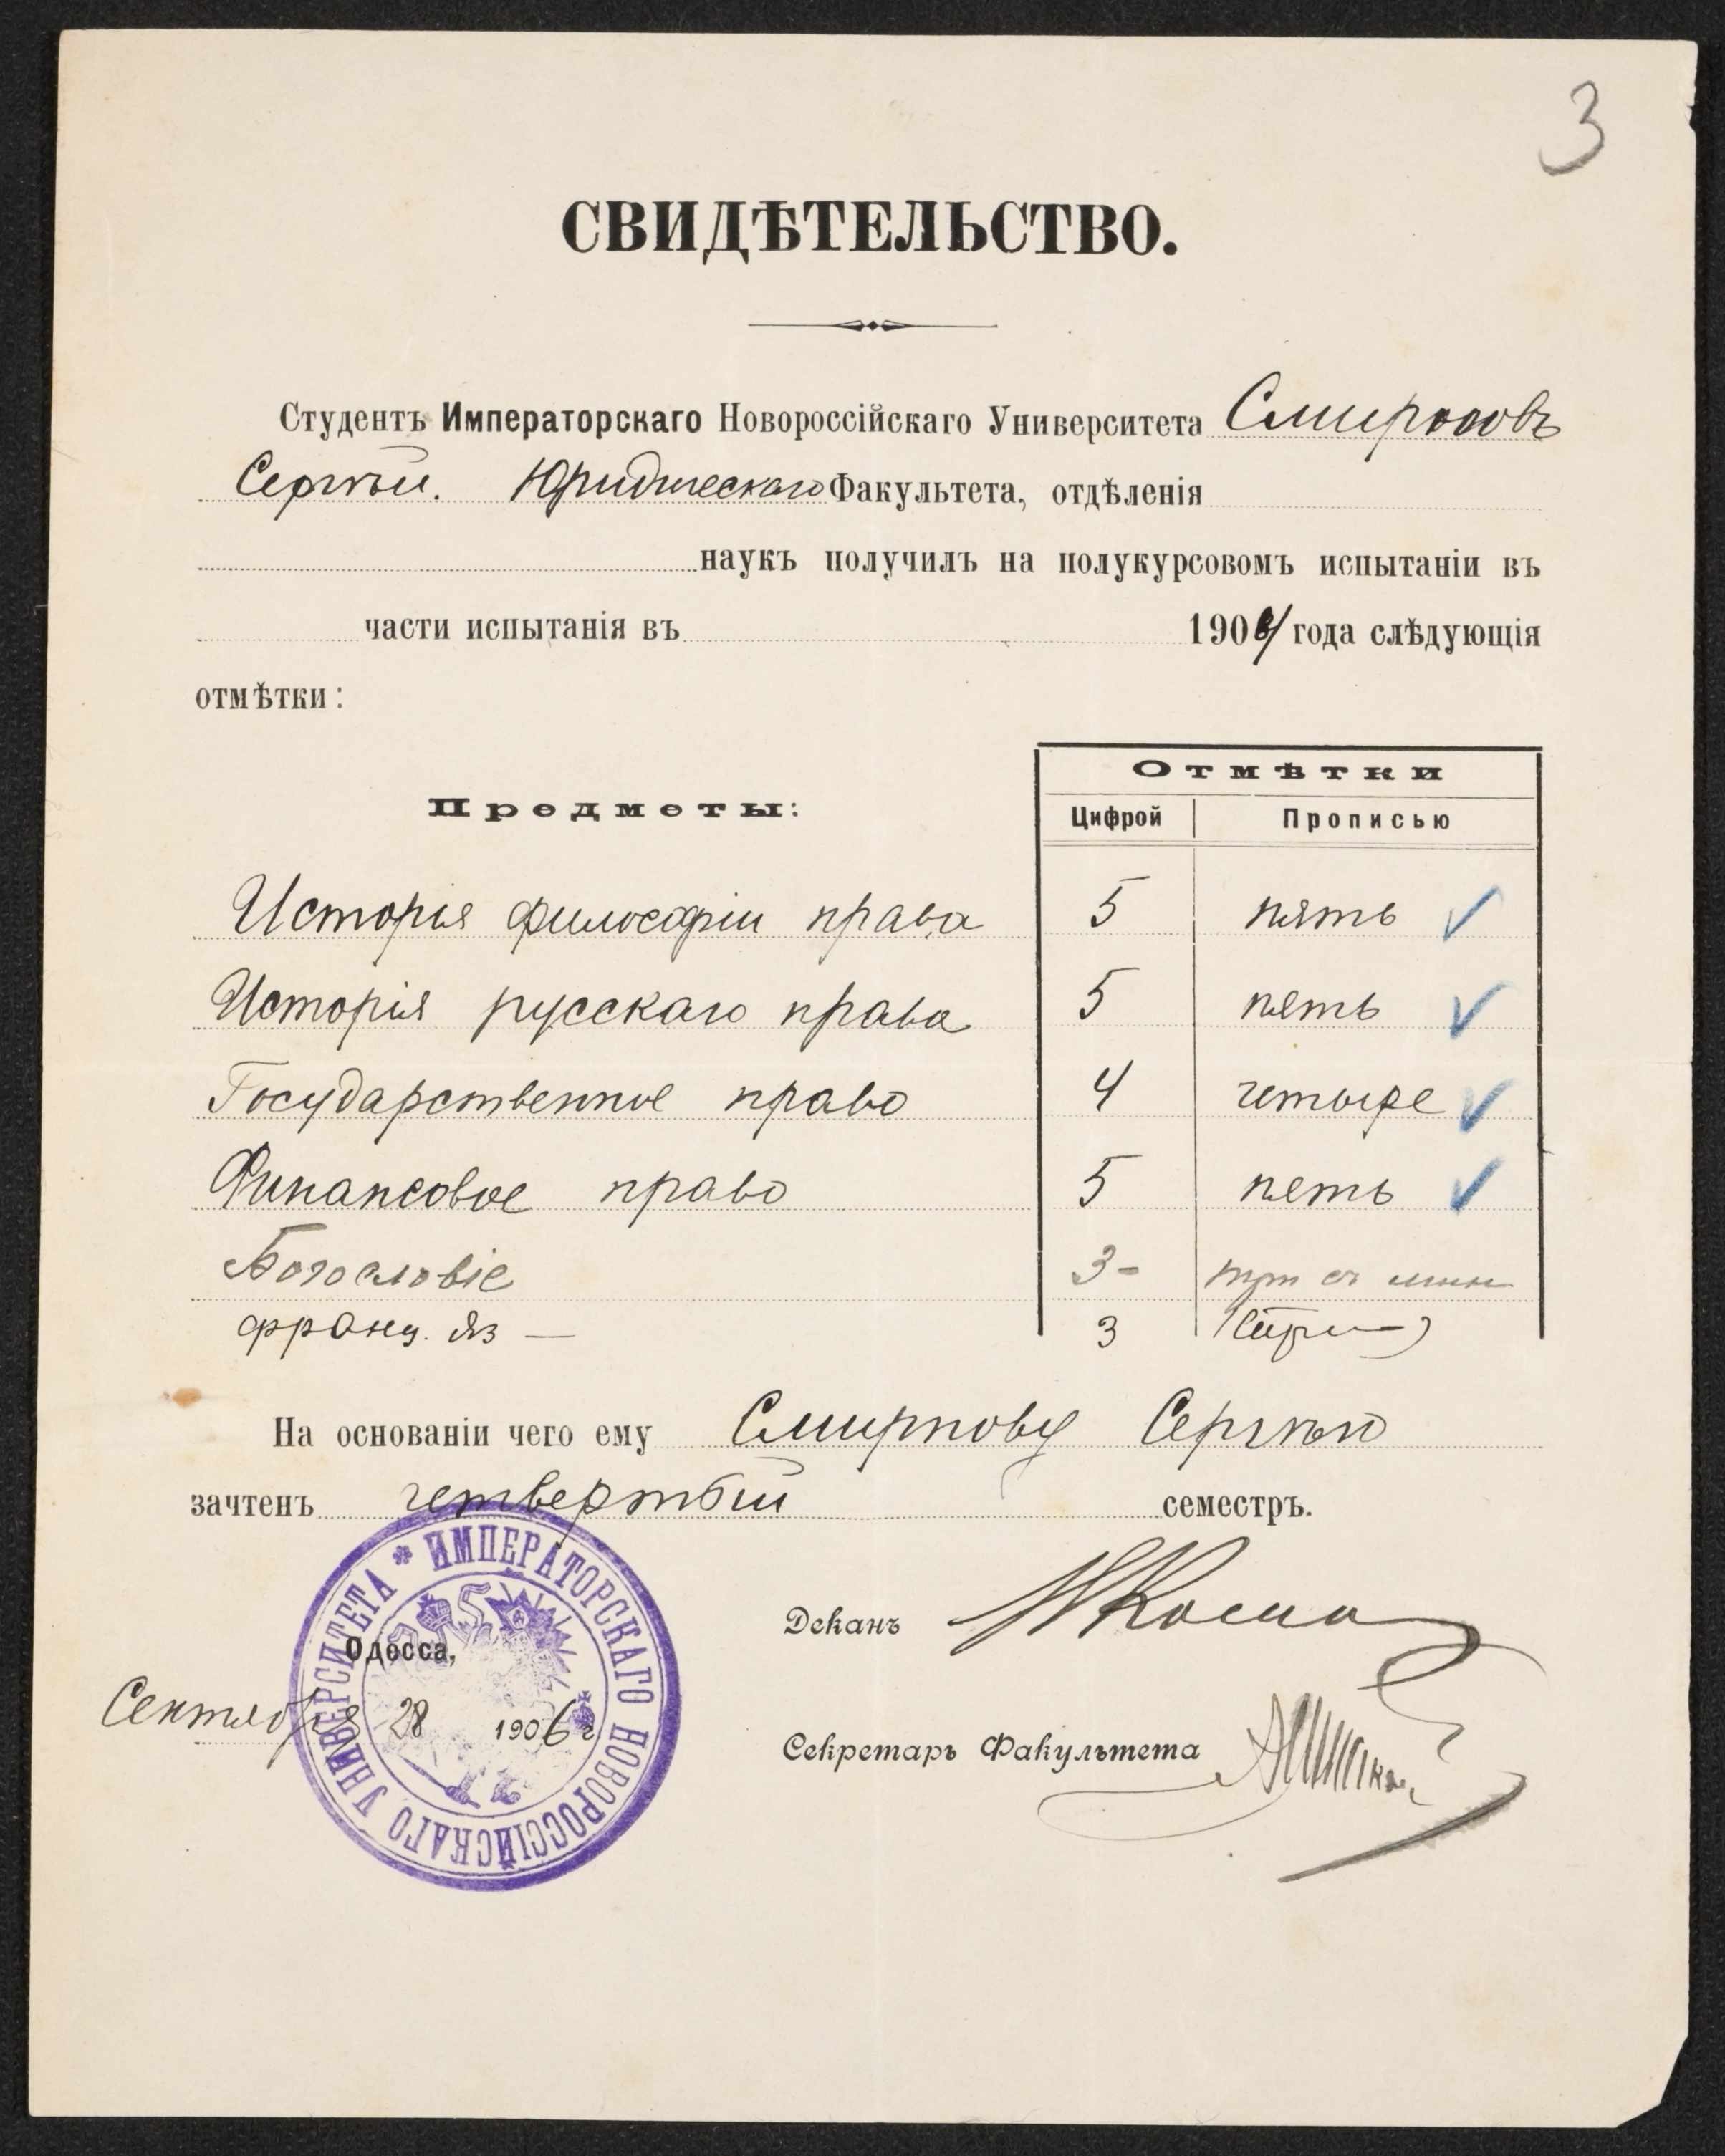 3
СВИДѢТЕЛЬСТВО.
Студентъ Императорскаго Новороссійскаго Университета Смирновъ
Сергѣй. Юридическаго Факультета, отдѣленія
наукъ получилъ на полукурсовомъ испытаніи въ
части испытанія въ 190 года слѣдующія
отмѣтки:
Отмѣтки
Предметы:
Цифрой Прописью
Исторія философіи права 5 пять ✓
Исторія русскаго права 5 пять ✓
Государственное право 4 четыре ✓
Финансовое право 5 пять ✓
Богословіе 3- три съ мин
франц. яз — 3 (три)
На основаніи чего ему Смирнову Сергѣю
зачтенъ четвертый семестръ.
ИМПЕРАТОРСКАГО НОВОРОССІЙСКАГО УНИВЕРСИТЕТА
Деканъ
Одесса,
Сентября 28 1906 г
Секретарь Факультета